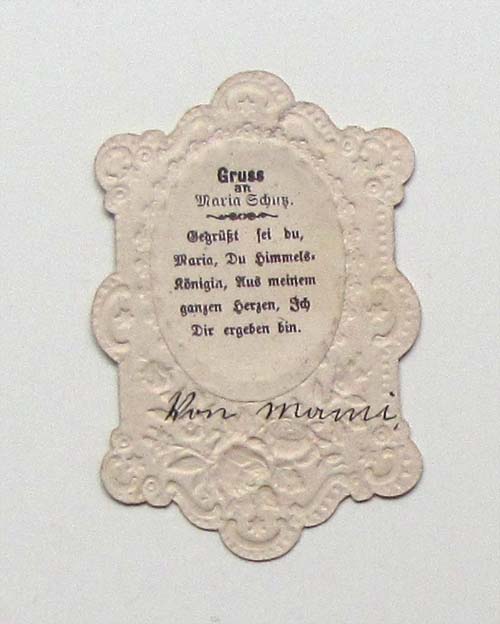 Gruss
an
Maria Schutz.
Gegrüßt sei du,
Maria, Du Himmels-
Königin, Aus meinem
ganzen Herzen, Ich
Dir ergeben bin.
Von Mami,